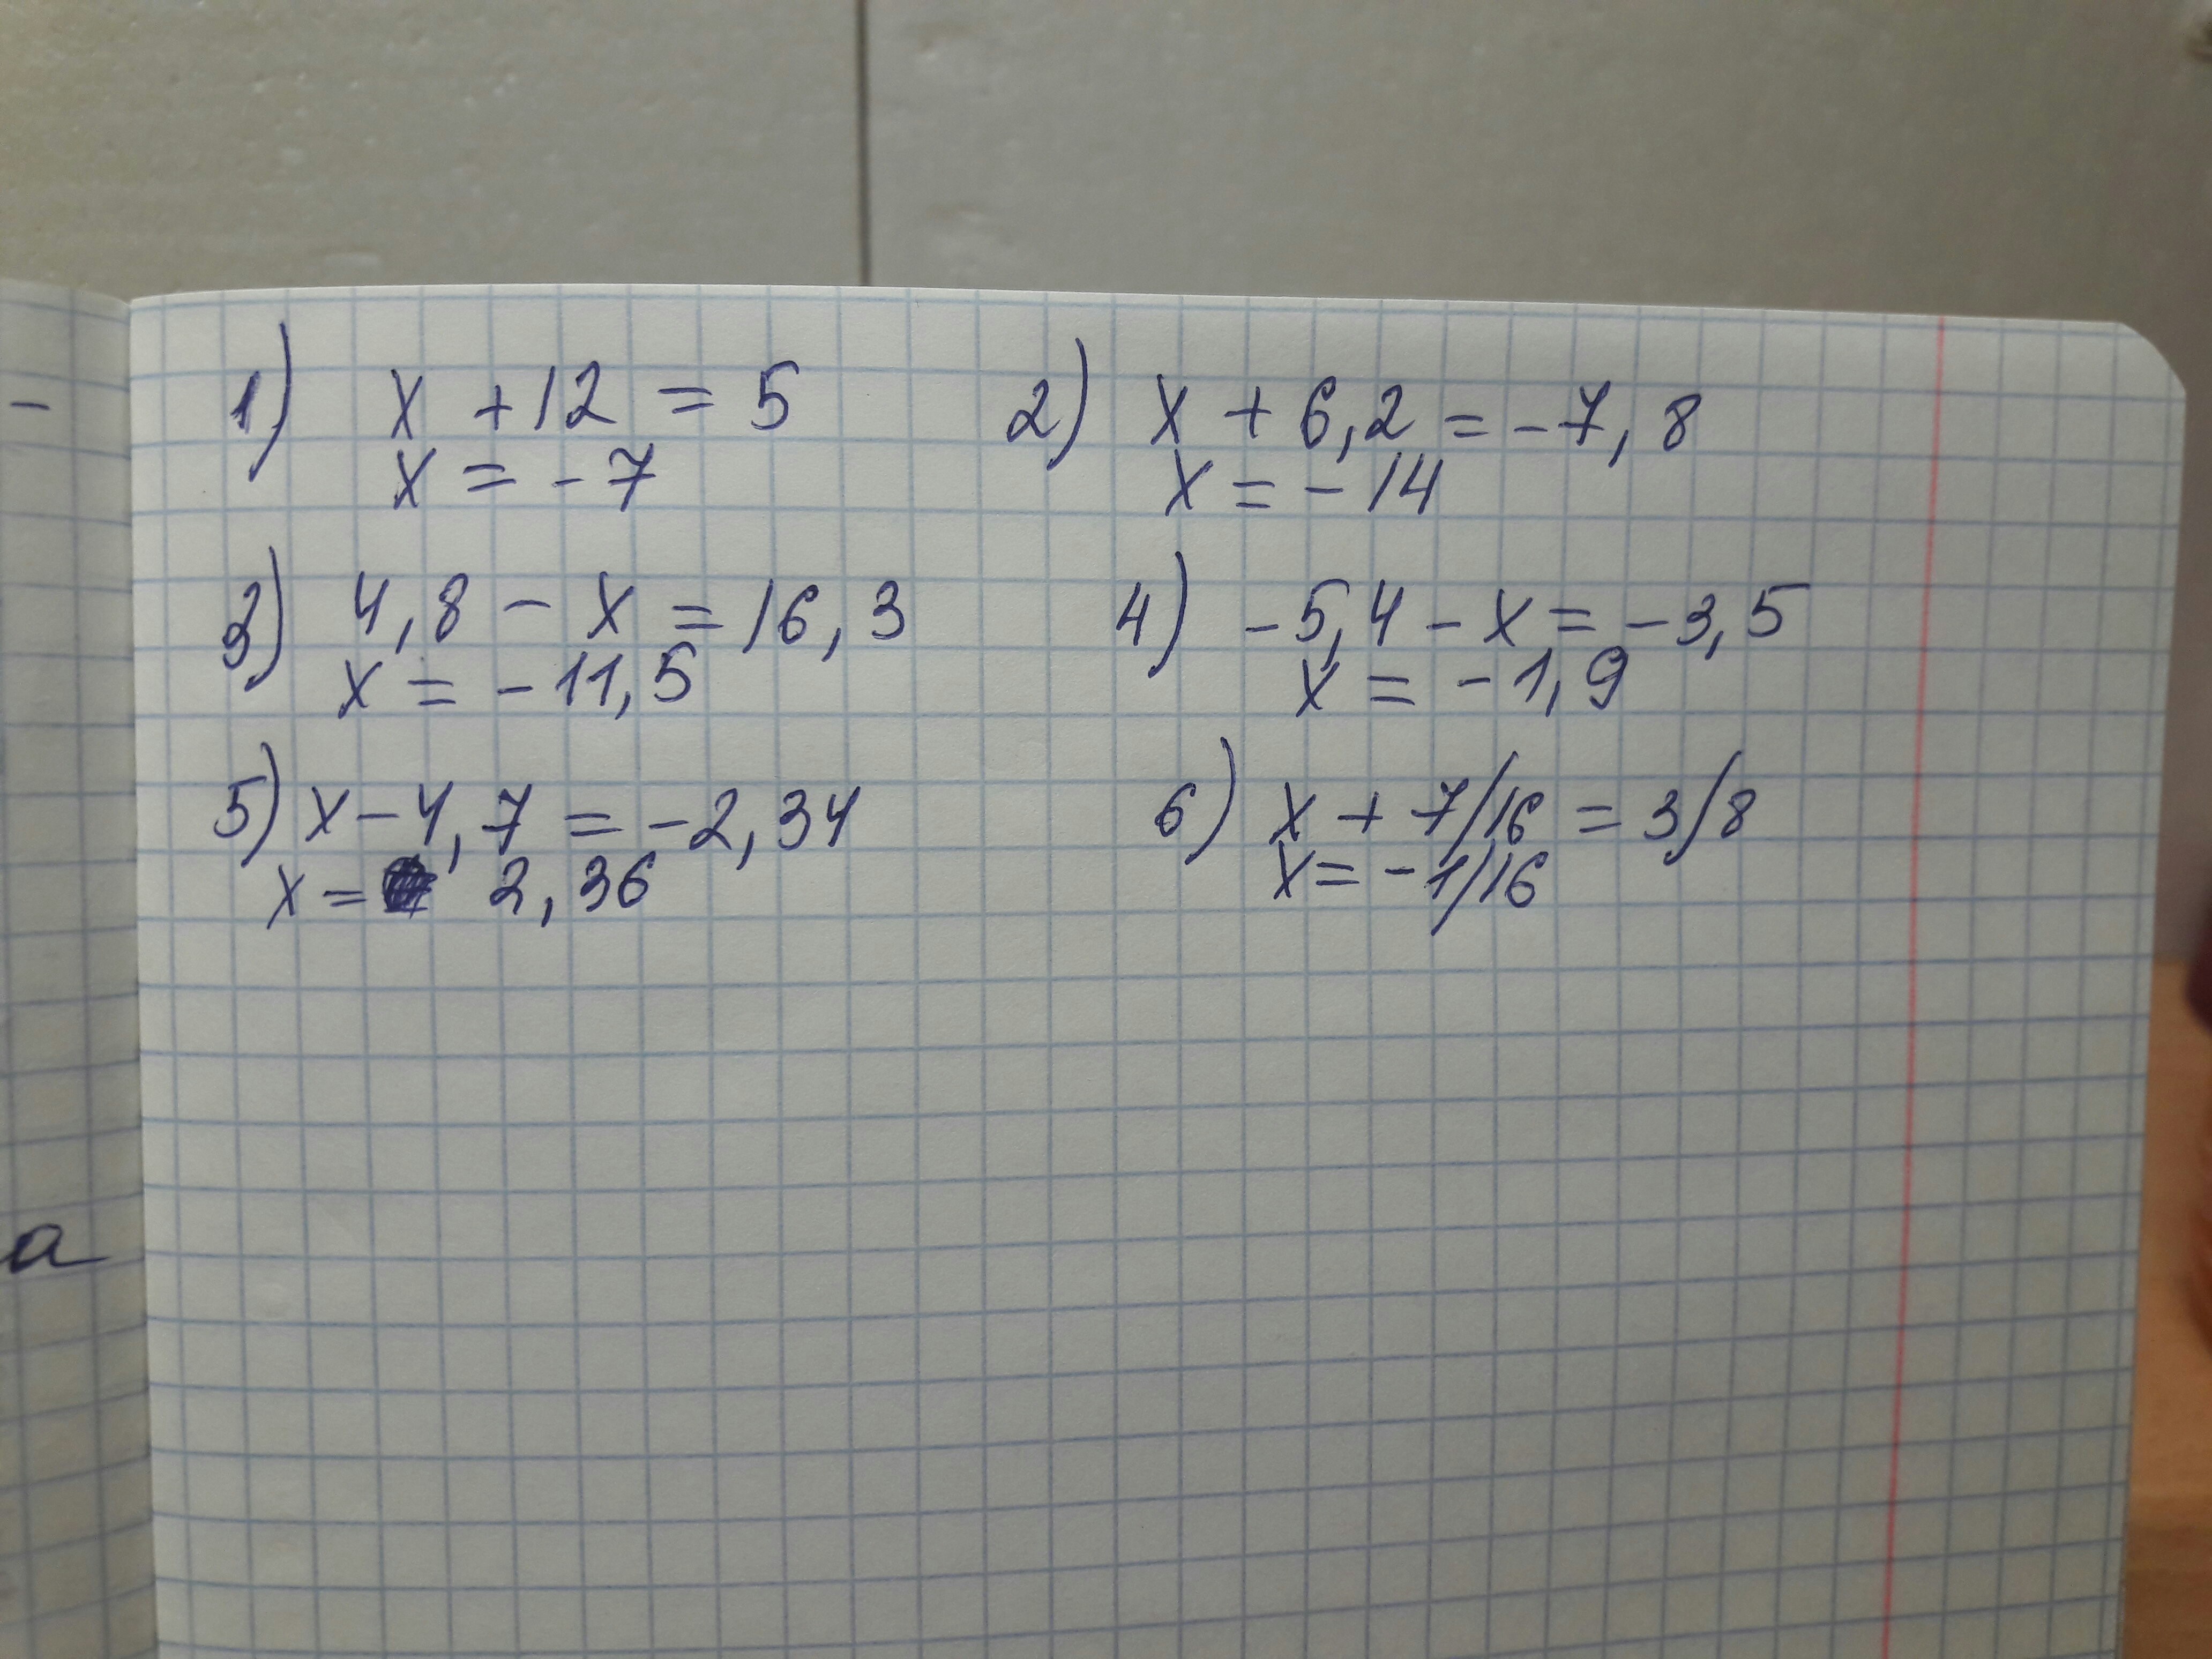 1) x + 12 = 5
x = - 7
2) x + 6,2 = - 7,8
x = - 14
3) 4,8 - x = 16,3
x = - 11,5
4) - 5,4 - x = - 3,5
x = - 1,9
5) x - 4,7 = - 2,34
x = 2,36
6) x + 7/16 = 3/8
x = - 1/16
-
а